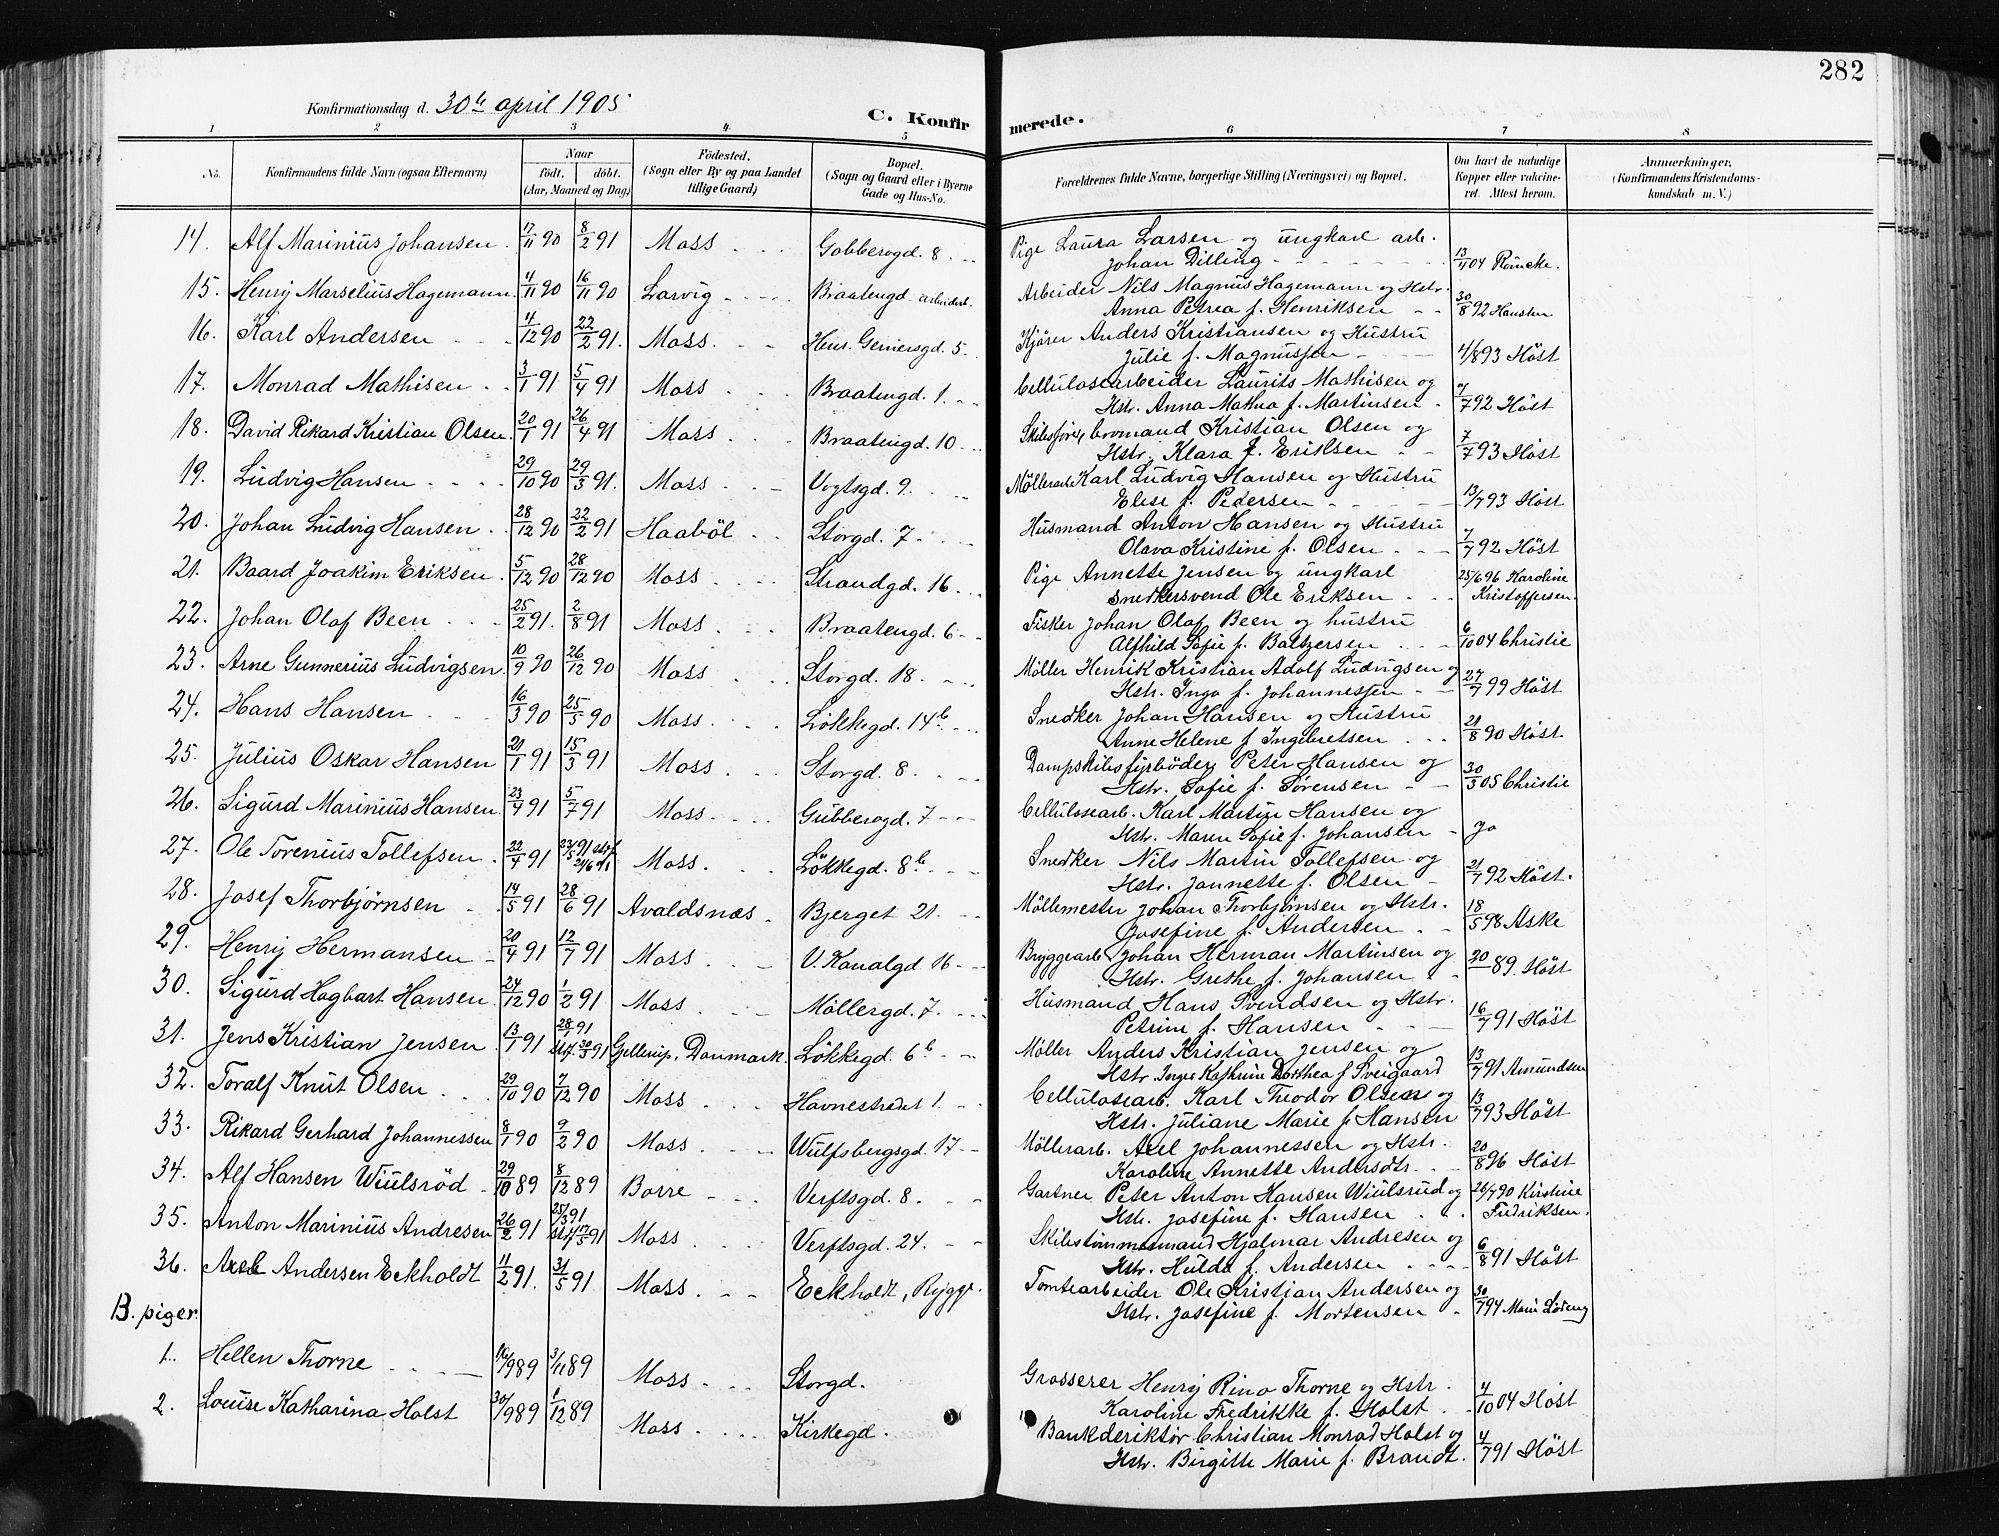 282
Konfirmationsdag d. 30te april 1905
C. Konfirmerede.
1 2 3 4 5 6 7 8
No. Konfirmandens fulde Navn (ogsaa Efternavn) Naar født. døbt. (Aar, Maaned og Dag) Födested. (Sogn eller By og paa Landet tillige Gaard) Bopæl. (Sogn og Gaard eller i Byerne Gade og Hus-No. Forældrenes fulde Navne, borgerlige Stilling (Næringsvei) og Bopæl. Om havt de naturlige Kopper eller vakcineret. Attest herom. Anmærkninger. (Konfirmandens Kristendomskundskab m. V.)
14. Alf Marinius Johansen 17/11 90 8/2 91 Moss Gobberogd. 8 Pige Laura Larsen og ungkarl arb.
Johan Dilling 13/4 04 Röncke.
15. Henry Marselius Hagemann 4/11 90 16/11 90 Larvig Braatengd. arbeiderb. Arbeider Nils Magnus Hagemann og Hstr.
Anna Petrea f. Henriksen 30/8 92 Hansten
16. Karl Andersen 4/12 90 22/2 91. Moss Henr. Gernersgd. 5. Kjörer Anders Kristiansen og Hustru
Julie f. Magnussen 4/8 93 Höst
17. Monrad Mathisen 3/1 91 5/4 91 Moss Braatengd. 1. Cellulosearbeider Laurits Mathisen og
Hstr. Anna Mathea f. Martinsen 7/7 92 Höst
18. David Rikard Kristian Olsen 20/1 91 26/4 91 Moss Braatengd. 10 Skibsförer, bromand Kristian Olsen og
Hstr. Klara f. Eriksen 7/7 93 Höst
19. Ludvig Hansen 29/10 90 29/3 91. Moss Vogtsgd. 9. Möllerarb. Karl Ludvig Hansen og Hustru
Elise f. Pedersen 13/7 93 Höst
20. Johan Ludvig Hansen 28/12 90 22/2 91 Haaböl Storgd. 7 Husmand Anton Hansen og Hustru
Olava Kristine f. Olsen 7/7 92 Höst
21. Baard Joakim Eriksen 5/12 90 28/12 90 Moss Strandgd. 16 Pige Annette Jensen og ungkarl
snedkersvend Ole Eriksen 25/6 96 Karoline Kristoffersen.
22. Johan Olaf Been 25/2 91. 2/8 91 Moss Braatengd. 6 Fisker Johan Olaf Been og hustru
Alfhild Sofie f. Baltzersen 6/10 04 Christie
23. Arne Gunnerius Ludvigsen 10/9 90 26/12 90 Moss Storgd. 18 Möller Henrik Kristian Adolf Ludvigsen og
Hstr. Inga f. Johannessen 27/7 99 Höst
24. Hans Hansen 16/3 90 25/5 90 Moss Lökkegd. 14b Snedker Johan Hansen og Hustru
Anne Helene f. Ingebretsen 21/8 90 Höst
25. Julius Oskar Hansen 21/1 91 15/3 91 Moss Storgd. 8 Dampskibsfyrböder Peter Hansen og
Hstr. Sofie f. Sørensen 30/3 05 Christie
26. Sigurd Marinius Hansen 23/4 91 5/7 91 Moss Gubberogd. 7 Cellulosearb. Karl Martin Hansen og
Hstr. Maren Sofie f. Johansen Ja
27. Ole Torenius Tollefsen 22/4 91 23/5 91 Moss Lökkegd. 8b Snedker Nils Martin Tollefsen og
Hstr. Jannette f. Olsen 21/7 92 Höst.
28. Josef Thorbjørnsen 14/5 91 28/6 91 Avaldsnæs Bjerget 21. Möllemester Johan Thorbjørnsen og Hstr.
Josefine f. Andersen 18/5 98 Aske
29. Henry Hermansen 20/4 91 12/7 91 Moss V. Kanalgd. 16 Bryggearb. Johan Herman Martinsen og
Hstr. Grethe f. Johansen 20/ 89. Höst
30. Sigurd Hagbart Hansen 24/12 90 1/2 91 Moss Möllergd. 7. Husmand Hans Svendsen og Hstr.
Petrine f. Hansen 16/7 91 Höst
31. Jens Kristian Jensen 13/1 91 28/1 91 stdf. 30/3 91 Gellerup, Danmark. Lökkegd. 6b Möller Anders Kristian Jensen og
Hstr. Inger Kathrine Dorthea f Sveigaard 13/7 91 Amundsen
32. Toralf Knut Olsen 29/10 90 7/12 90 Moss Havnestrædet 1. Cellulosearb. Karl Theodor Olsen og
Hstr. Juliane Marie f. Hansen 13/7 93 Höst
33. Rikard Gerhard Johannessen 8/1 90 9/2 90 Moss Wulfsbergsgd. 17 Möllerarb. Axel Johannessen og Hstr.
Karoline Annette Andersdtr. 20/8 96 Höst
34. Alf Hansen Wiulsröd 29/10 89 8/12 89 Borre Verftsgd. 8 Gartner Peter Anton Hansen Wiulsrud og
Hstr. Josefine f. Hansen 26/7 90 Kirstine Fredriksen.
35. Anton Marinius Andresen 26/2 91 25/3 91 stdf. 17/5 91 Moss Verftsgd. 24. Skibstömmermand Hjalmar Andresen og
Hstr. Hulda f. Andersen 6/8 91 Höst
36. Axel Andersen Eckholdt 11/2 91. 31/5 91 Moss Eckholdt, Rygge. Tomtearbeider Ole Kristian Andersen og
Hstr. Josefine f. Mortensen 30/7 94 Marie Lödeng
B. piger.
1. Hellen Thorne 16/9 89 3/11 89 Moss Storgd. Grosserer Henrij Rino Thorne og Hstr.
Karoline Fredrikke f. Holst 4/10 04 Höst
2. Louise Katharina Holst 30/9 89 1/12 89 Moss Kirkegd. Bankderiktør Christian Monrad Holst og
Hstr. Birgitte Marie f. Brandt. 4/7 91 Höst